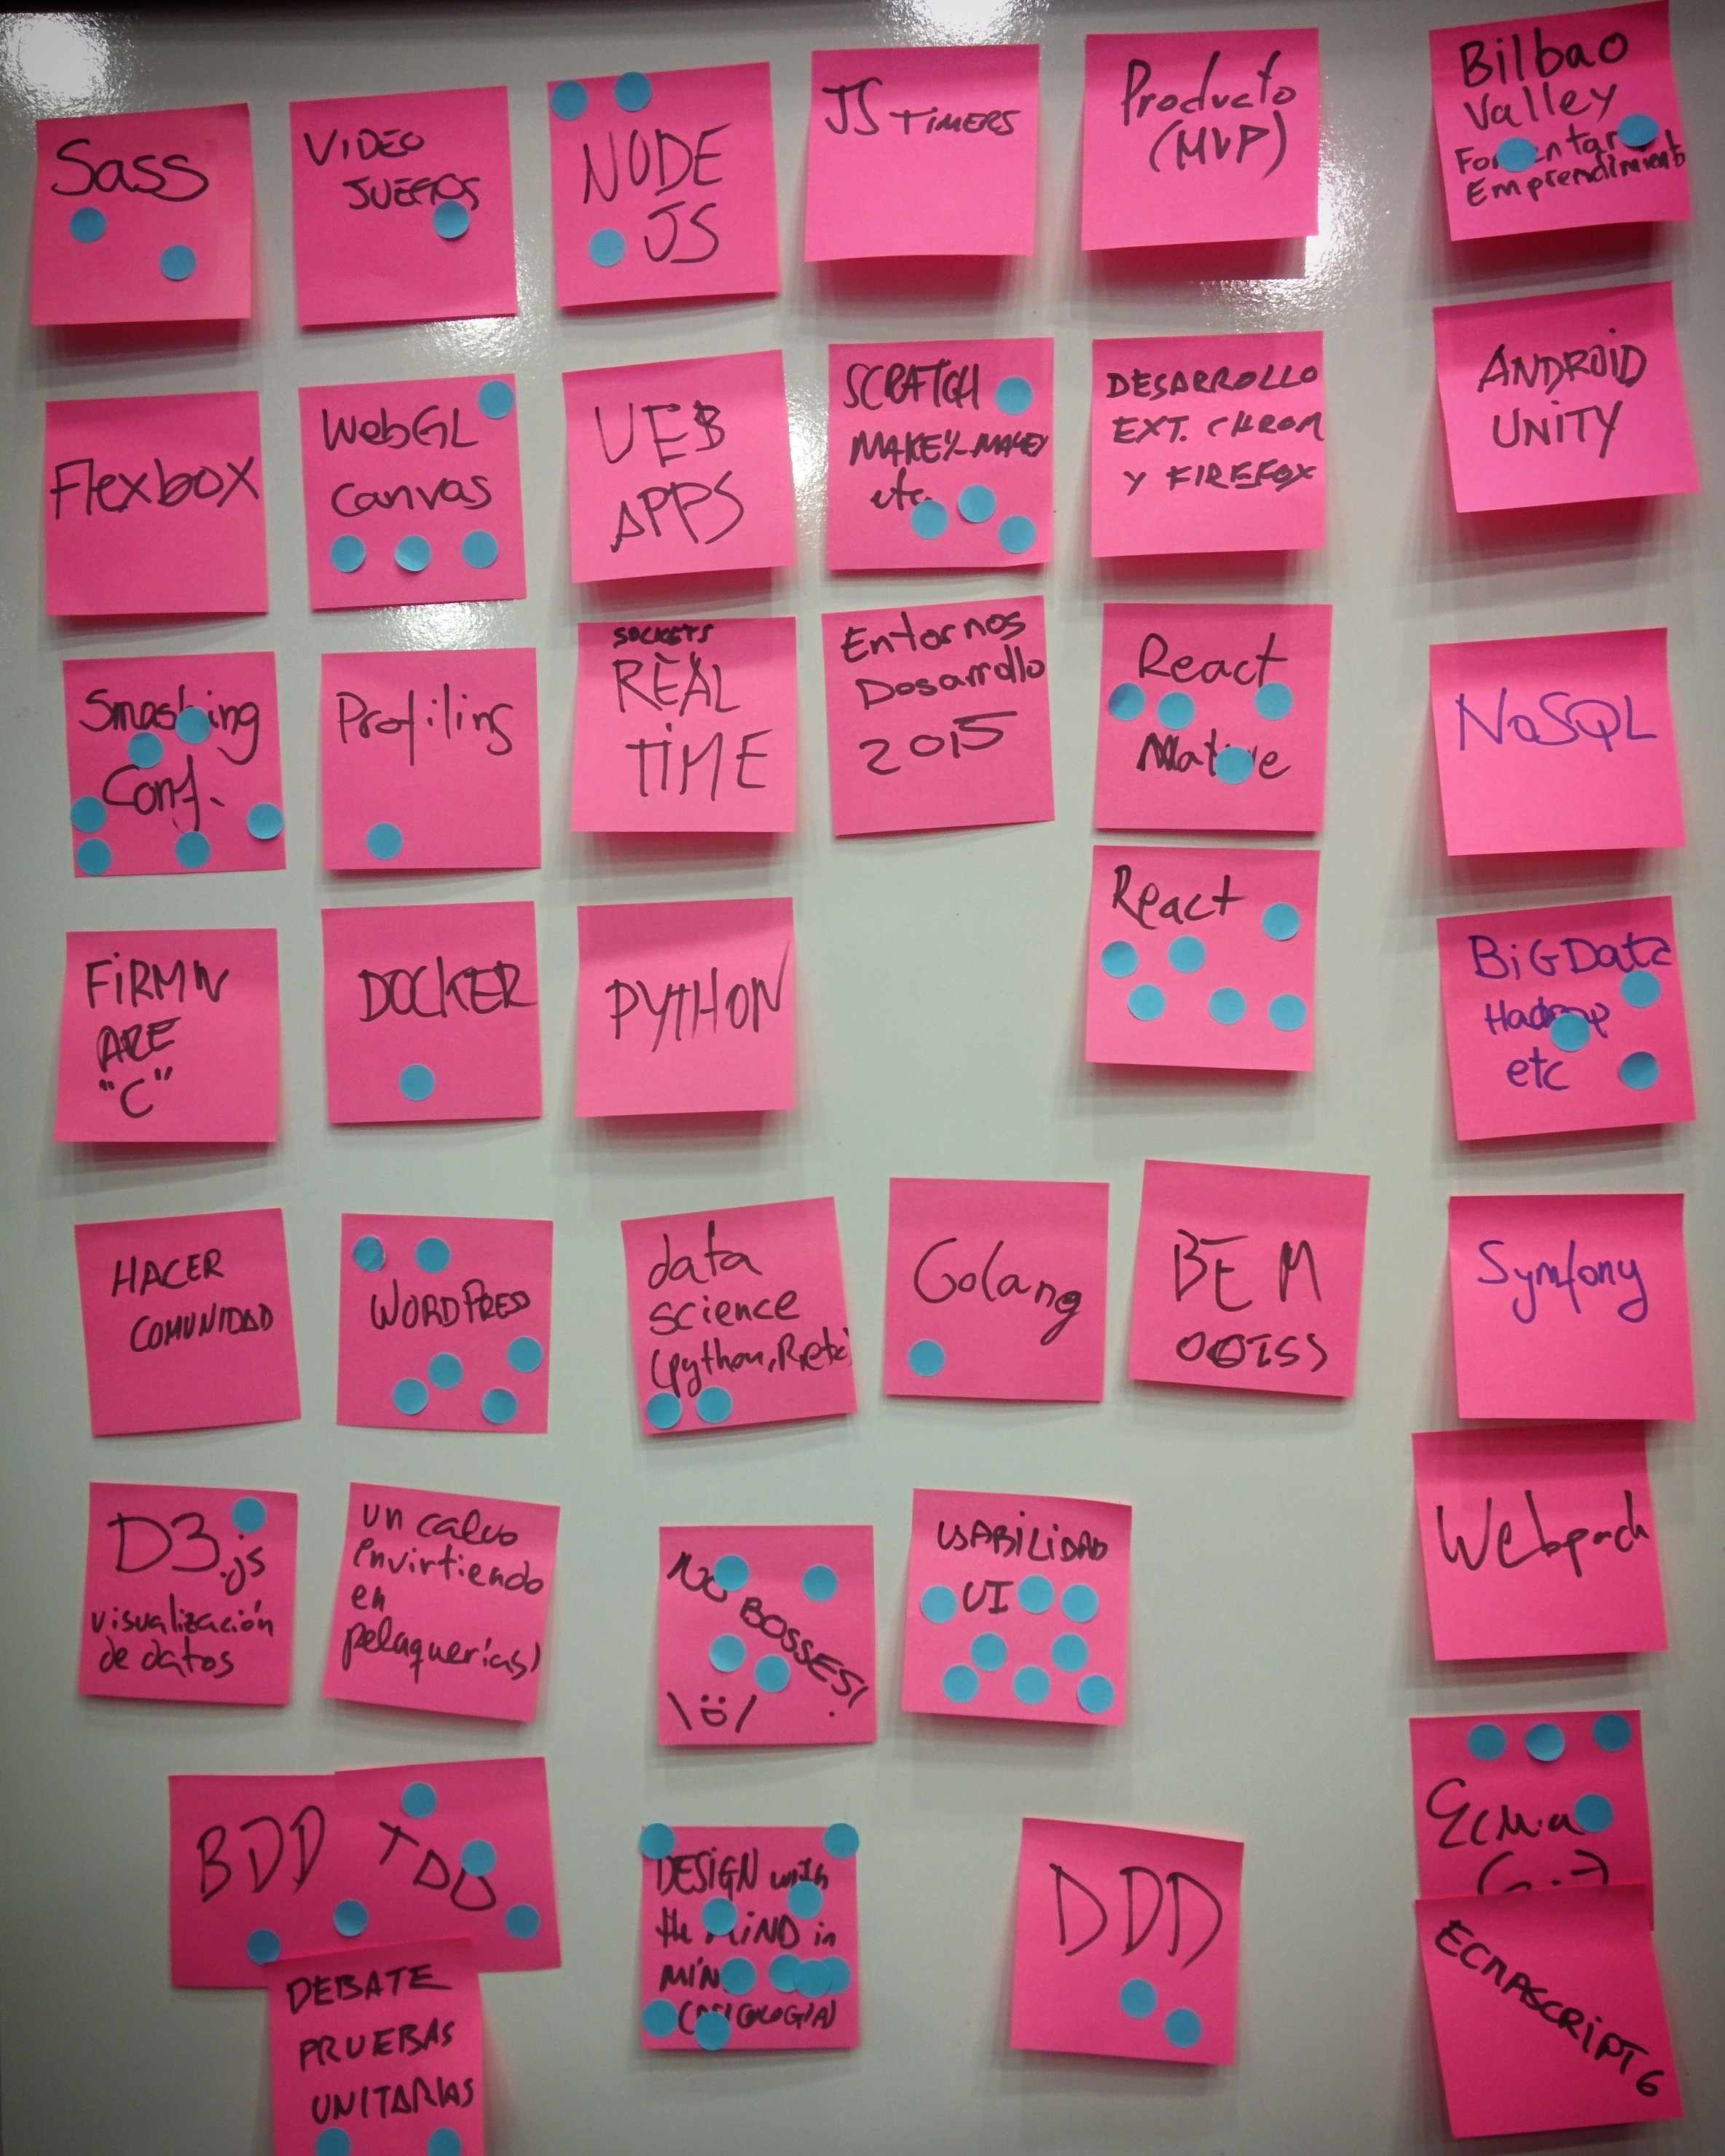 Sass
VIDEO
JUEGOS
NODE
JS
JS TIMERS
Producto
(MVP)
Bilbao
Valley
Fomentar
Emprendimiento
Flexbox
WebGL
Canvas
WEB
APPS
SCRATCH
MAKEY-MAKEY
etc.
DESARROLLO
EXT. CHROM
Y FIREFOX
ANDROID
UNITY
Smashing
Conf.
Profiling
SOCKETS
REAL
TIME
Entornos
Desarrollo
2015
React
Native
NoSQL
FIRMW
ARE
"C"
DOCKER
PYTHON
React
BIG Data
Hadoop
etc
HACER
COMUNIDAD
WORDPRESS
data
science
(python, R, etc)
Golang
BEM
Symfony
D3.js
visualización
de datos
un calvo
invirtiendo
en
peluquerías)
NO BOSSES!
USABILIDAD
UI
Webpack
BDD
TDD
DEBATE
PRUEBAS
UNITARIAS
DESIGN with
the MIND in
MIND
(PSICOLOGIA)
DDD
Ecma
ECMASCRIPT 6